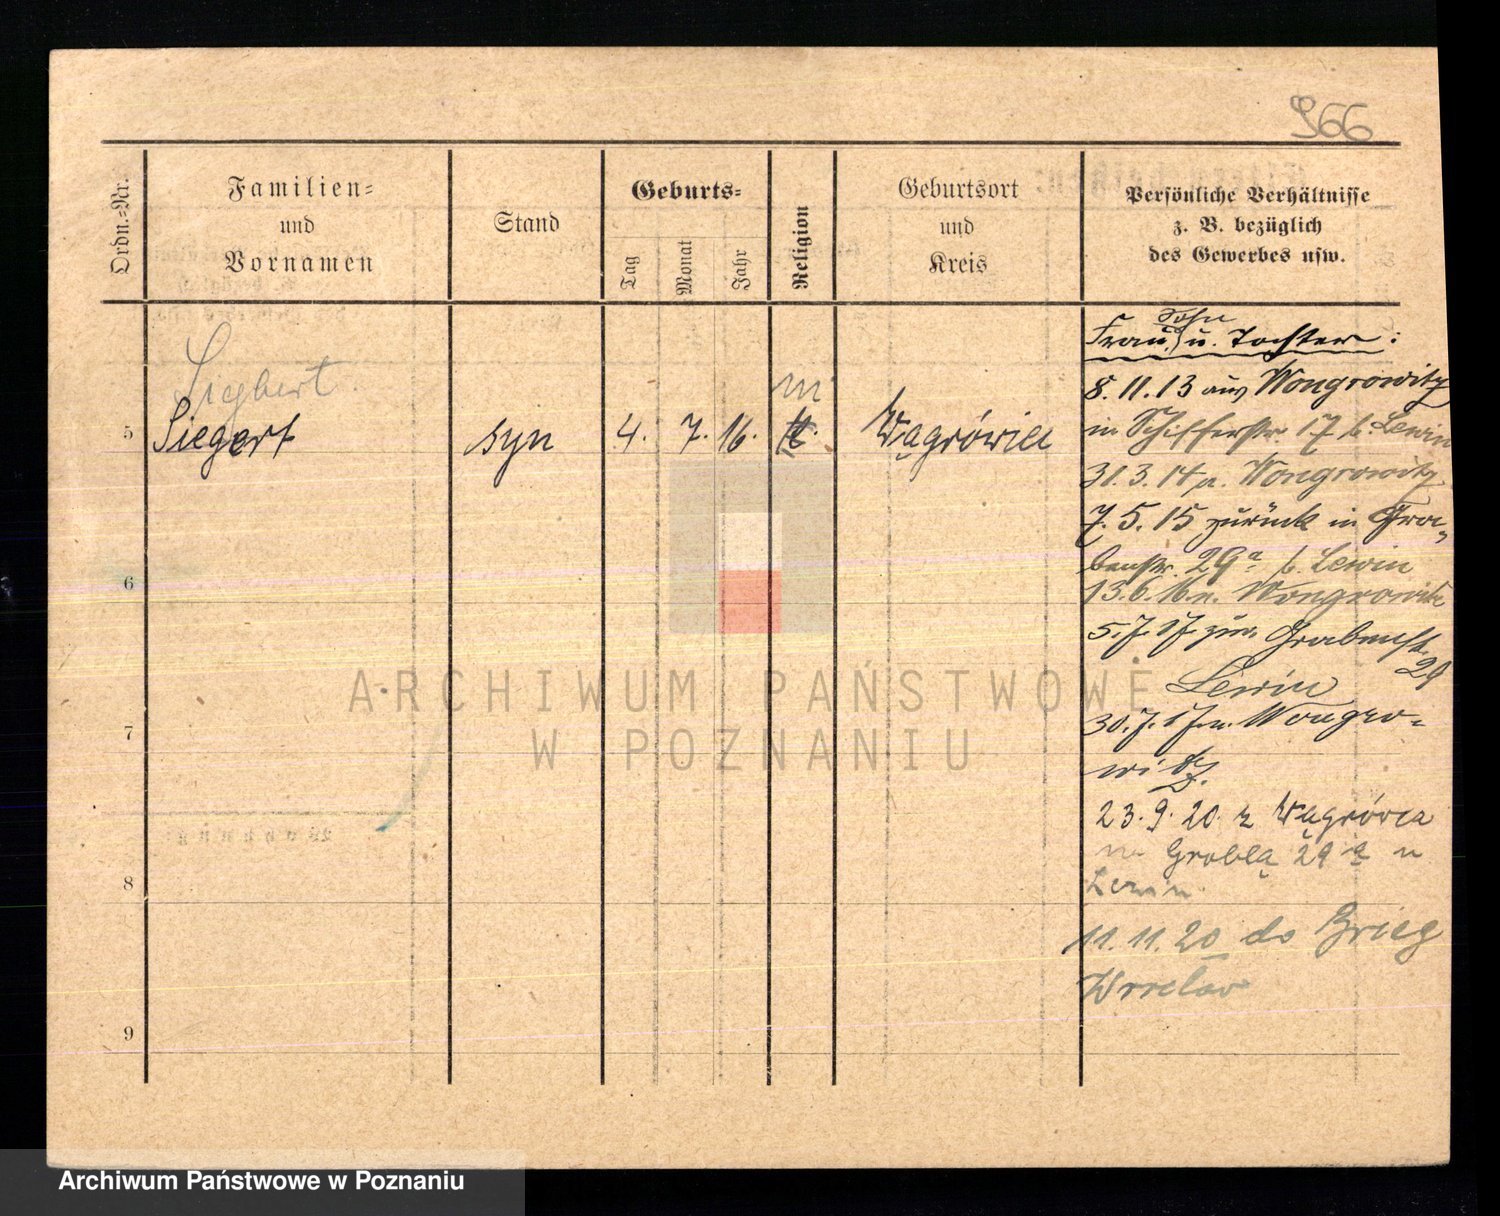 966
Ordn.=Nr.
Familien=
und
Vornamen
Stand
Geburts=
Tag
Monat
Jahr
Religion
Geburtsort
und
Kreis
Persönliche Verhältnisse
z. B. bezüglich
des Gewerbes usw.
Sohn
Frau, u. Tochter:
8. 11. 13 aus Wongrowitz
in Schifferstr. 17 b. Lewin
31. 3. 14 n. Wongrowitz
7. 5. 15 zurück in Gra=
benstr. 29a b. Lewin
13. 6. 16 n. Wongrowitz
5. 7. 17 zur. Grabenst.
29
Lewin
30. 7. 17 n. Wongro=
witz.
23. 9. 20. z Wągrówca
na Groblą 29 a u
Lewin.
11. 11. 20 do Brieg
Siegbert
m
5 Siegert syn 4. 7. 16. Wągrówiec
6
7
8
9
ARCHIWUM PAŃSTWOWE
W POZNANIU
Archiwum Państwowe w Poznaniu